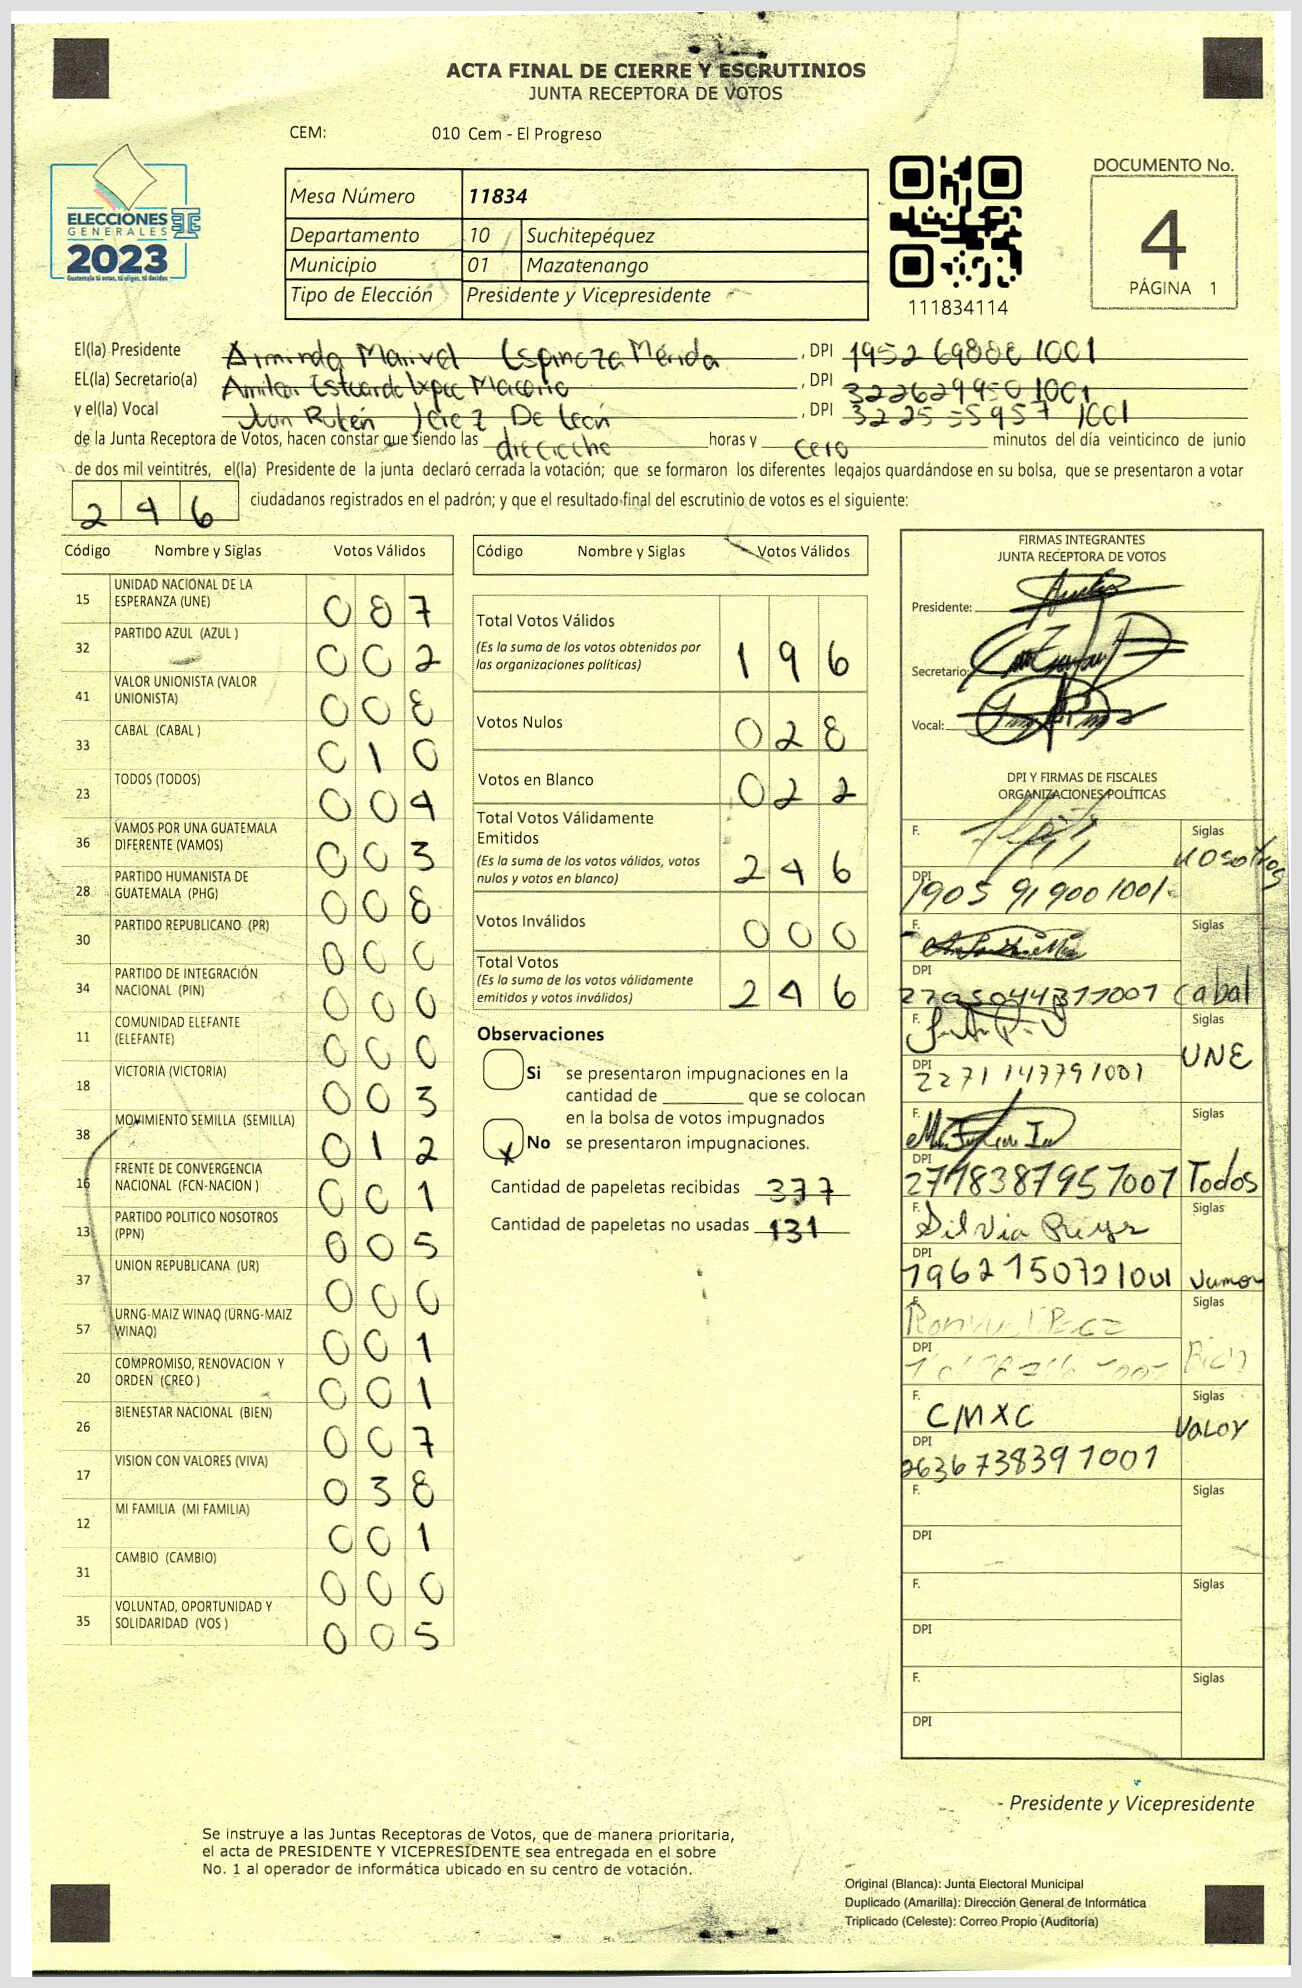 ACTA FINAL DE CIERRE Y ESCRUTINIOS
JUNTA RECEPTORA DE VOTOS
CEM: 010 Cem - El Progreso
ELECCIONES
GENERALES
2023
Guatemala tú votas, tú eliges, tú decides
Mesa Número 11834
Departamento 10 Suchitepéquez
Municipio 01 Mazatenango
Tipo de Elección Presidente y Vicepresidente
111834114
DOCUMENTO No.
4
PÁGINA 1
El(la) Presidente Arminda Marivel Espinoza Mérida, DPI
EL(la) Secretario(a) Estuardo, DPI 322629950 1001
y el(la) Vocal Juan Rubén Jerez De León, DPI 3225 55957 1001
de la Junta Receptora de Votos, hacen constar que siendo las dieciocho horas y cero minutos del día veinticinco de junio
de dos mil veintitrés, el(la) Presidente de la junta declaró cerrada la votación; que se formaron los diferentes legajos quardándose en su bolsa, que se presentaron a votar
246 ciudadanos registrados en el padrón; y que el resultado final del escrutinio de votos es el siguiente:
Código Nombre y Siglas Votos Válidos
15 UNIDAD NACIONAL DE LA ESPERANZA (UNE) 087
32 PARTIDO AZUL (AZUL ) 002
41 VALOR UNIONISTA (VALOR UNIONISTA) 008
33 CABAL (CABAL ) 010
23 TODOS (TODOS) 004
36 VAMOS POR UNA GUATEMALA DIFERENTE (VAMOS) 003
28 PARTIDO HUMANISTA DE GUATEMALA (PHG) 008
30 PARTIDO REPUBLICANO (PR) 000
34 PARTIDO DE INTEGRACIÓN NACIONAL (PIN) 000
11 COMUNIDAD ELEFANTE (ELEFANTE) 000
18 VICTORIA (VICTORIA) 003
38 MOVIMIENTO SEMILLA (SEMILLA) 012
16 FRENTE DE CONVERGENCIA NACIONAL (FCN-NACION ) 001
13 PARTIDO POLITICO NOSOTROS (PPN) 005
37 UNION REPUBLICANA (UR) 000
57 URNG-MAIZ WINAQ (URNG-MAIZ WINAQ) 001
20 COMPROMISO, RENOVACION Y ORDEN (CREO ) 001
26 BIENESTAR NACIONAL (BIEN) 007
17 VISION CON VALORES (VIVA) 038
12 MI FAMILIA (MI FAMILIA) 001
31 CAMBIO (CAMBIO) 000
35 VOLUNTAD, OPORTUNIDAD Y SOLIDARIDAD (VOS ) 005
Código Nombre y Siglas Votos Válidos
Total Votos Válidos 196
(Es la suma de los votos obtenidos por
las organizaciones políticas)
Votos Nulos 028
Votos en Blanco 022
Total Votos Válidamente
Emitidos 246
(Es la suma de los votos válidos, votos
nulos y votos en blanco)
Votos Inválidos 000
Total Votos 246
(Es la suma de los votos válidamente
emitidos y votos inválidos)
Observaciones
Si se presentaron impugnaciones en la
cantidad de ________ que se colocan
en la bolsa de votos impugnados
x No se presentaron impugnaciones.
Cantidad de papeletas recibidas 377
Cantidad de papeletas no usadas 131
FIRMAS INTEGRANTES
JUNTA RECEPTORA DE VOTOS
Presidente:
Secretario:
Vocal:
DPI Y FIRMAS DE FISCALES
ORGANIZACIONES POLÍTICAS
F. Siglas Nosotros
DPI 1905 91900 1001
F. Siglas Cabal
DPI
F. Siglas UNE
DPI 2271 147791001
F. Siglas Todos
DPI 2778387957001
F. Silvia Reyes Siglas Vamos
DPI 1962150721001
F. Siglas Bien
DPI
F. CMXC Siglas Valor
DPI 2636738391001
F. Siglas
DPI
F. Siglas
DPI
F. Siglas
DPI
- Presidente y Vicepresidente
Se instruye a las Juntas Receptoras de Votos, que de manera prioritaria,
el acta de PRESIDENTE Y VICEPRESIDENTE sea entregada en el sobre
No. 1 al operador de informática ubicado en su centro de votación.
Original (Blanca): Junta Electoral Municipal
Duplicado (Amarilla): Dirección General de Informática
Triplicado (Celeste): Correo Propio (Auditoría)